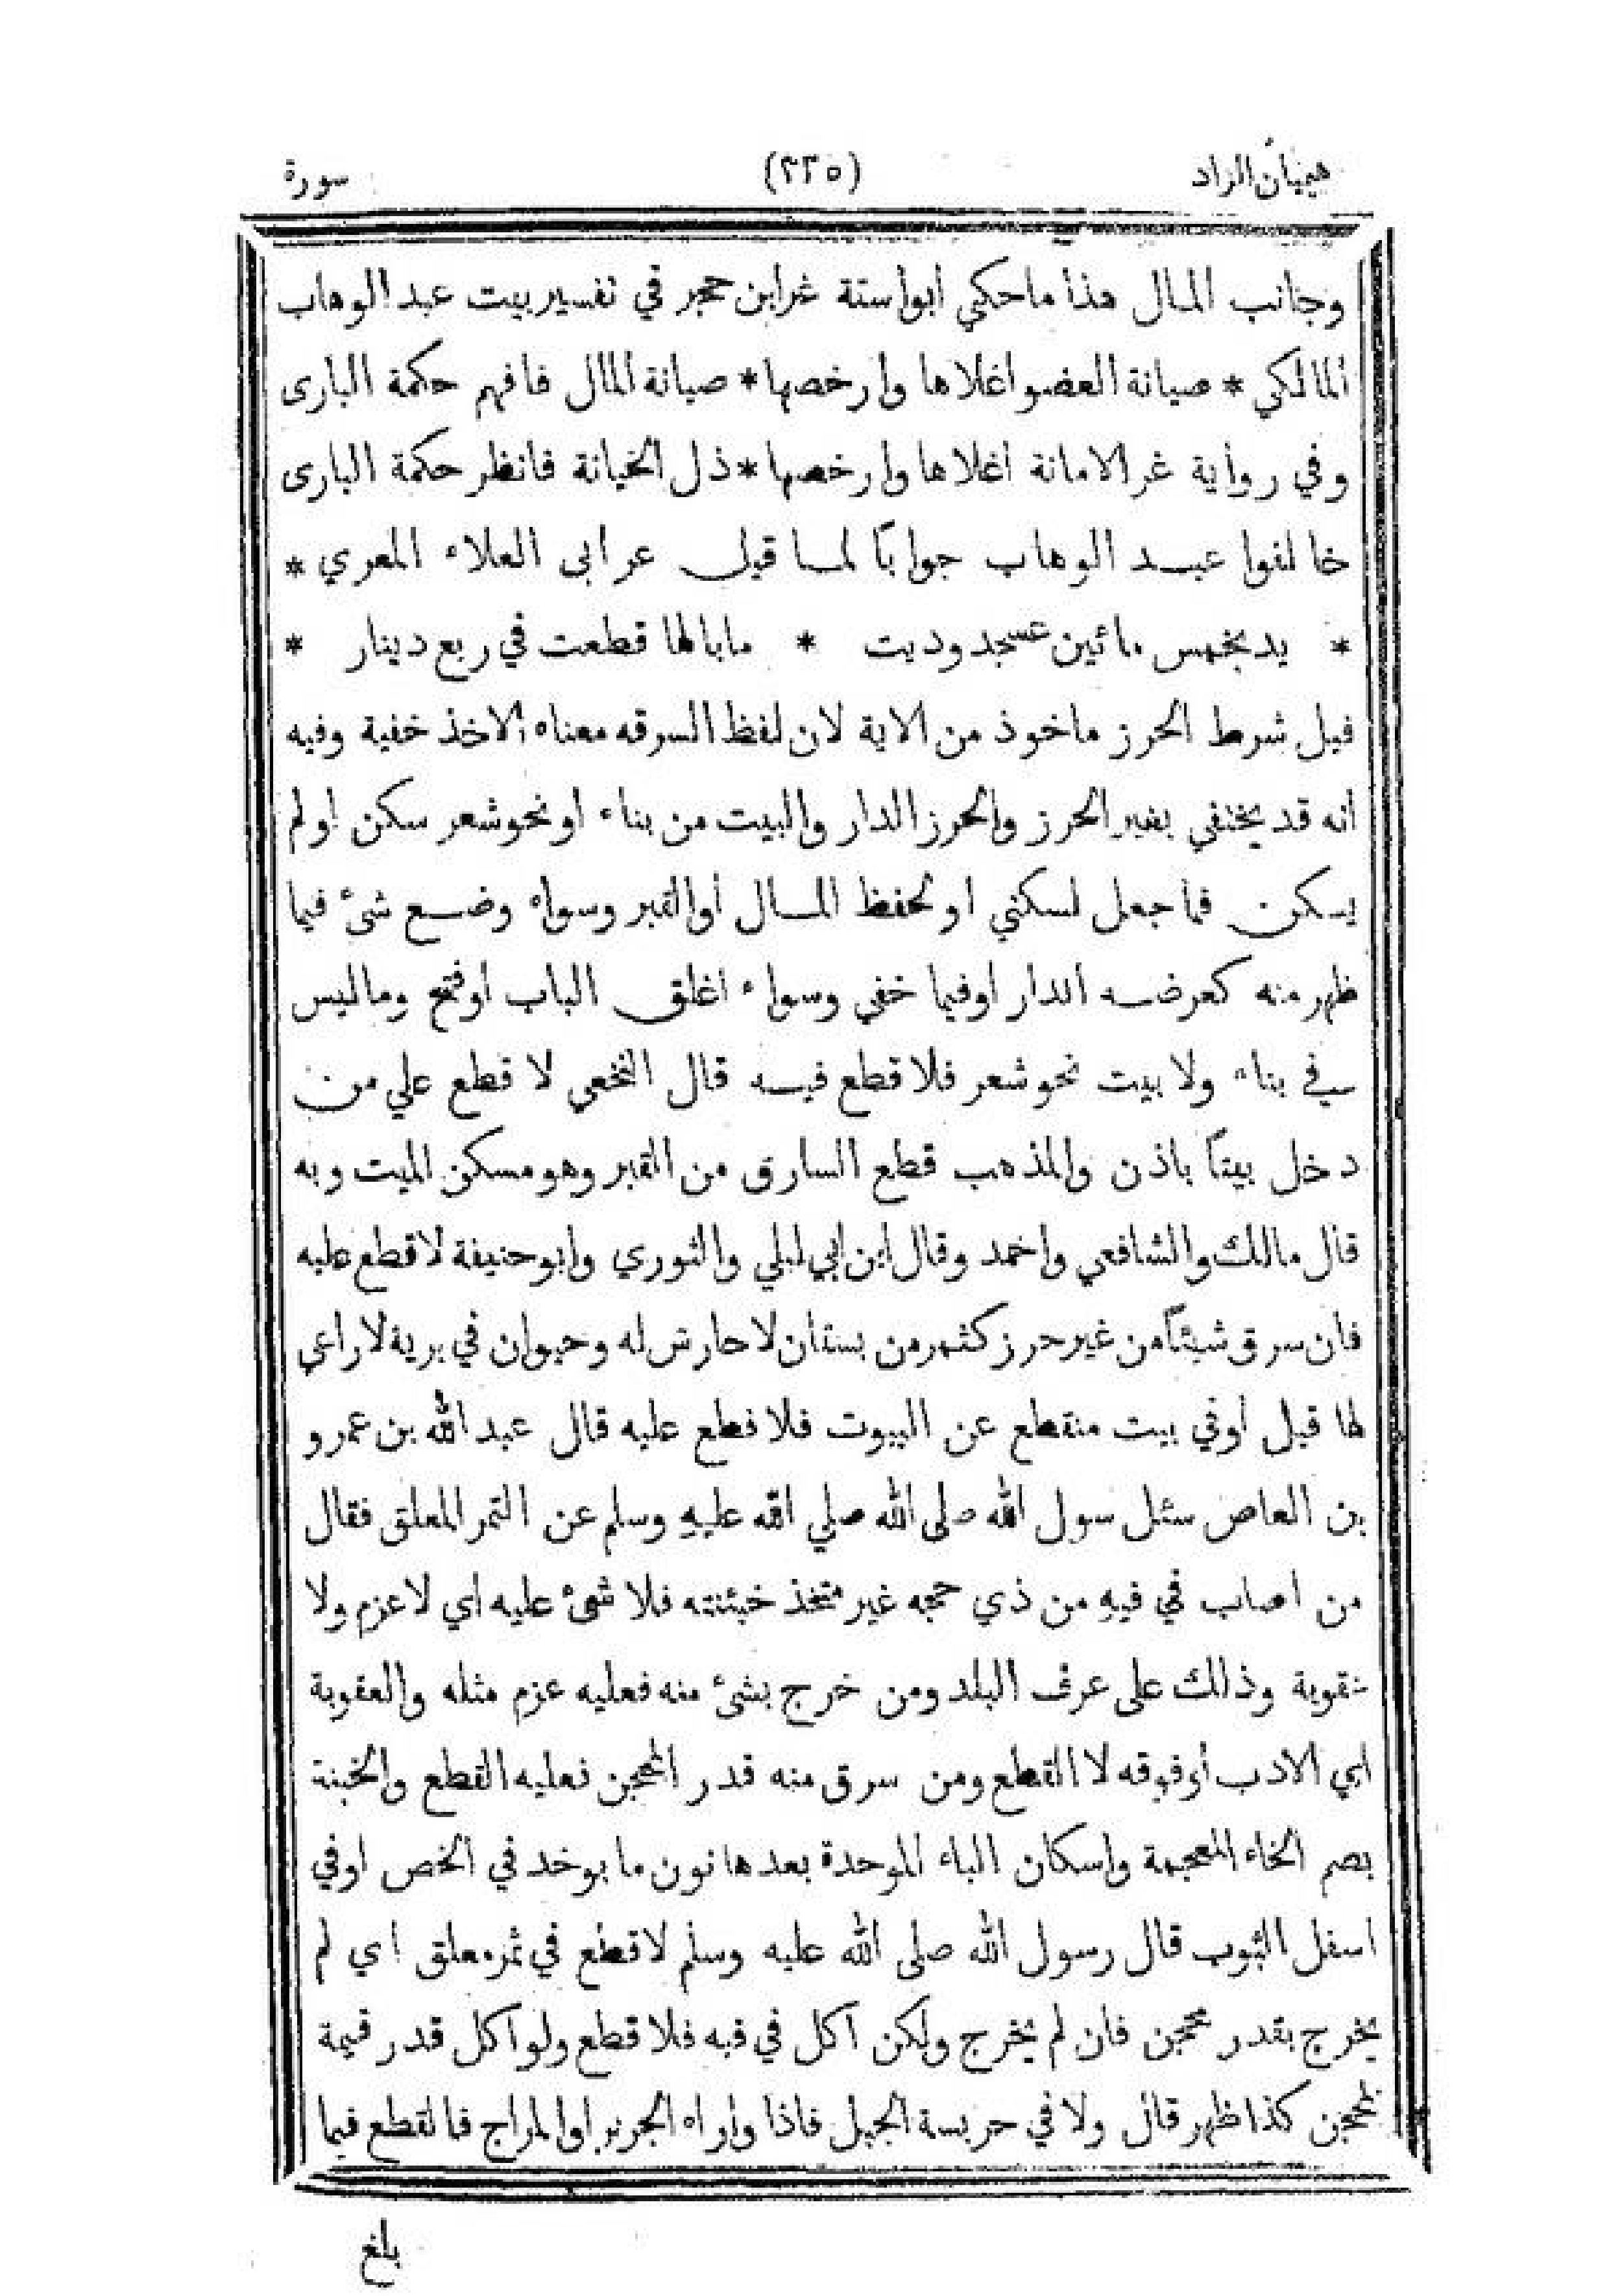 هيميان الزاد (٢٣٥) سورة
وجانب المال هذا ما حكي أبو أستة غرابن حجر في تفسير بيت عبد الوهاب
المالكي * صيانة العضو اغلاها وارخصها * صيانة المال فافهم حكمة البارى
وفي رواية غر الامانة اغلاها وارخصها * ذل الخيانة فانظر حكمة البارى
خا لفوا عبد الوهاب جواباً لما قيل عر ابى العلاء المعري *
* يد بخمس مائين عسجد وديت * ما بالها قطعت في ربع دينار *
قيل شرط الحرز ماخوذ من الاية لان لفظ السرقه معناه الاخذ خفية وفيه
أنه قد يختفي بغير الحرز والحرز الدار والبيت من بناء او نحو شعر سكن او لم
يسكن فما جعل لسكني او لحفظ المال أو القبر وسواء وضع شئ فيما
ظهر منه كعرضه الدار او فيما خفي وسواء اغلق الباب أو فتح وما ليس
في بناء ولا بيت نحو شعر فلا قطع فيه قال النخعي لا قطع علي من
دخل بيتاً باذن والمذهب قطع السارق من القبر وهو مسكن الميت وبه
قال مالك والشافعي واحمد وقال ابن ابي ليلي والثوري وابو حنيفة لا قطع عليه
فان سرق شيئاً من غير حرز كثمر من بستان لا حارس له وحيوان في برية لا راعي
لها قيل أو في بيت منقطع عن البيوت فلا قطع عليه قال عبد الله بن عمرو
بن العاص سئل سول الله صلى الله صلي الله عليه وسلم عن التمر المعلق فقال
من اصاب في فيه من ذي حجه غير متخذ خبئنته فلا شئ عليه اي لا عزم ولا
عقوبة وذلك على عرف البلد ومن خرج بشئ منه فعليه عزم مثله والعقوبة
اي الادب أو فوقه لا القطع ومن سرق منه قدر المجن فعليه القطع والخبنة
بصم الخاء المعجمة واسكان الباء الموحدة بعدها نون ما بوخد في الخص او في
اسفل الثوب قال رسول الله صلى الله عليه وسلم لا قطع في ثمر معلق اي لم
يخرج بقدر مجن فان لم يخرج ولكن أكل في فيه فلا قطع ولو أكل قدر قيمة
مجن كذا ظهر قال ولا في حريسة الجبل فاذا واراه الجرير او المراج فا لقطع فيما
بلغ